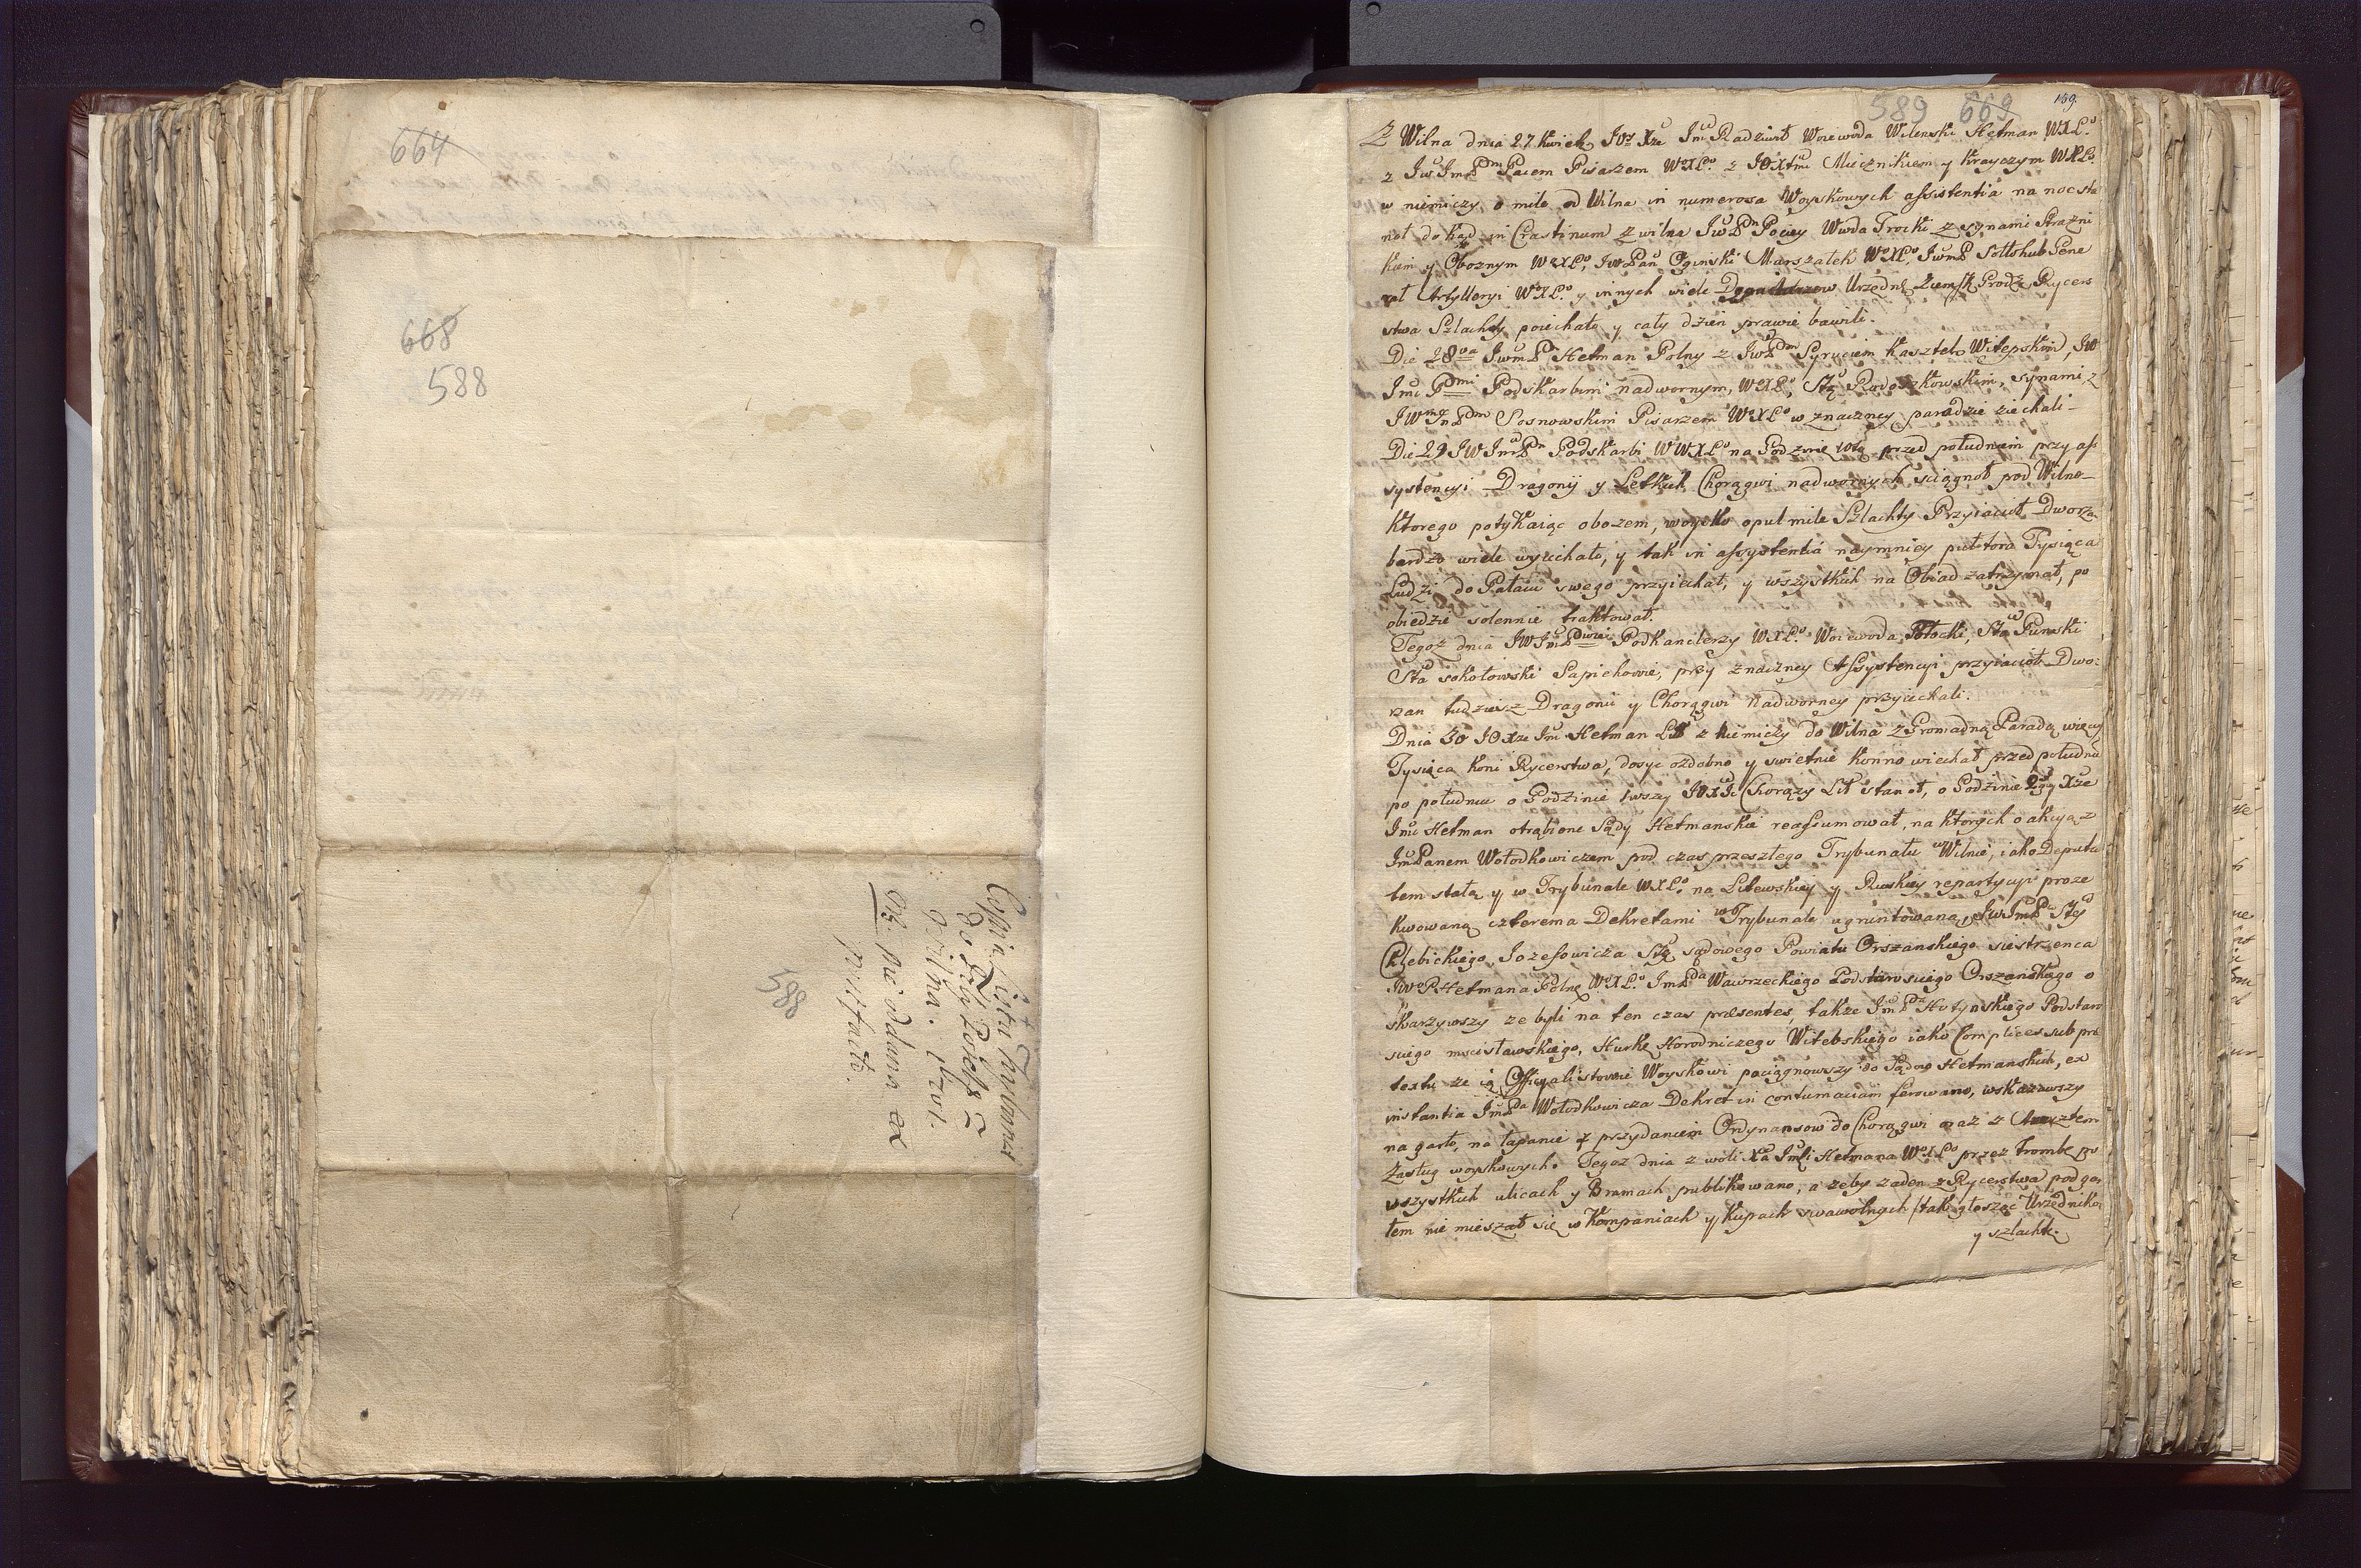 664
668
588
Copia Listu Trybunał
do
Wilna.
NB. nie wydana ex
588
589 669 169
Z Wilna dnia 27 kwiet. JOs Xże Jmć Radziwił Woiewoda Wilenski Hetman WXLo
z JW Jm Pdm Pacem Pisarzem WoXLo z JOXtmi Miecznikiem y Krayczym WXLo
w niemiczy o mile od Wilna in numerosa Woyskowych assistentia na noc sta
noł dokąd in Crastinum z wilna JWPn Pociey Wwda Trocki z synami Strażni
kiem y Oboznym WoXLo, JWPan Oginski Marszałek WoXLo JwmP Sołłohub Gene
rał Artylleryi WoXLo y innych wiele Urzędn Ziemsk Grodz Rycers
stwa Szlachty poiechało y cały dzień prawie bawili.
Die 28va JwmP Hetman Polny z JwPdm Syruciem Kasztel. Witepskim, JW
Jmć Pdmi Podskarbim nadwornym, WoXLo, Stą Rodoszkowskim, synami, z
JWmPdm Sosnowskim Pisarzem WoXLo w znaczney paradzie ziechali
Die 29 JW JmPn Podskarbi WWXLo na Godzinę 10tą przed południem przy as
systencyi Dragonij y Letkich Chorągwi nadwornych sciągnoł pod Wilno
ktorego potykaiąc obozem, woysko opuł mile Szlachty Przyiacioł Dworza
bardzo wiele wyiechało, y tak in assystentiá naymniey pułtora Tysiąca
Ludzi do Pałacu swego przyiechał, y wszystkich na Obiad zatrzymał, po
obiedzie solennie traktował.
Tegoż dnia JWJmP Podkanclerzy WXLo Woiewoda Połocki, Sta Punski
Sta sokołowski Sapiehowie, przy znaczney Assystencyi przyiacioł Dwo:
rzan tudziesz Dragonii y Chorągwi Nadworney przyiechali.
Dnia 30 JOXze Jmć Hetman Lit z niemiczy do Wilna z Gromadną Paradą więcey
Tysiąca koni Rycerstwa, dosyc ozdobno y swietnie konno wiechał przed południem
po południu o Godzinie 1wszy JOXJć Chorązy Lit stanoł, o Godzinie 2giey Xże
Jmć Hetman otrąbione Sądy Hetmanskie reassumował, na ktorych o akcyą z
JmPanem Wołodkowiczem pod czas przeszłego Trybunału w Wilnie, iako Deputa
tem stałą y w Trybunale WXLo na Litewskiey y Ruskiey repartycyi proze
kwowaną czterema Dekretami w Trybunale ugruntowaną, JwJmP Stę
Chlebickiego, Jozefowicza Stę sądowego Powiatu Orszanskiego siestrzenca
JWoP Hetmana Polnę WoXLo JmPda Wawrzeckiego Podstarosciego Orszanskiego o
skarzywszy ze byli na ten czas præsentes, takze JmPda Hołynskiego Podstaro
sciego mscisławskiego, Hurkę Horodniczego Witebskiego iako Complices sub præ
textu ze ią Officyalistowie Woyskowi paciągnowszy do Sądow Hetmanskich, ex
instantia JmPda Wołodkowicza Dekret in contumaciam ferowano, wskazawszy
na garło, na łapanie z przydaniem Ordynansow do Chorągwi oraz z
Zasług woyskowych. Tegoz dnia z woli Xa Jmći Hetmana WoXLo przez trombe po
wszystkich ulicach y Bramach publikowano, a zeby zaden z Rycerstwa pod gar
łem nie mieszał się w Kompaniach y kupach swawolnych /tak głosząc Urzędnikow
y szlachtę.